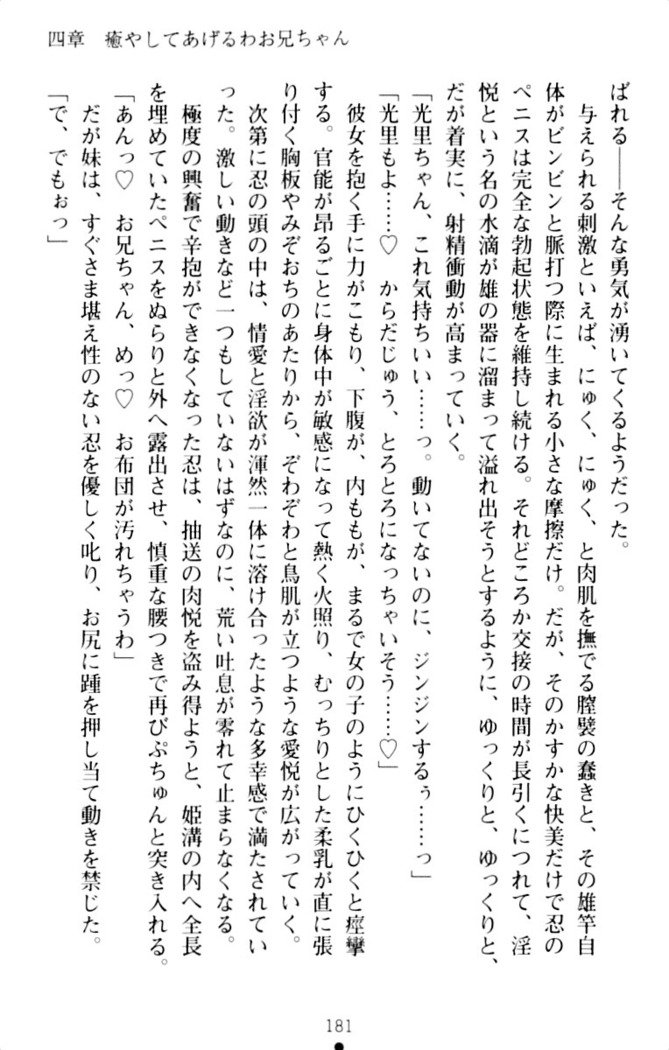 四章 癒やしてあげるわお兄ちゃん
ばれる――そんな勇気が湧いてくるようだった。
与えられる刺激といえば、にゅく、にゅく、と肉肌を撫でる膣襞の蠢きと、その雄竿自
体がビンビンと脈打つ際に生まれる小さな摩擦だけ。だが、そのかすかな快美だけで忍の
ペニスは完全な勃起状態を維持し続ける。それどころか交接の時間が長引くにつれて、淫
悦という名の水滴が雄の器に溜まって溢れ出そうとするように、ゆっくりと、ゆっくりと、
だが着実に、射精衝動が高まっていく。
「光里ちゃん、これ気持ちいい……っ。動いてないのに、ジンジンするぅ……っ」
「光里もよ……♡ からだじゅう、とろとろになっちゃいそう……♡」
彼女を抱く手に力がこもり、下腹が、内ももが、まるで女の子のようにひくひくと痙攣
する。官能が昂るごとに身体中が敏感になって熱く火照り、むっちりとした柔乳が直に張
り付く胸板やみぞおちのあたりから、ぞわぞわと鳥肌が立つような愛悦が広がっていく。
次第に忍の頭の中は、情愛と淫欲が渾然一体に溶け合ったような多幸感で満たされてい
った。激しい動きなど一つもしていないはずなのに、荒い吐息が零れて止まらなくなる。
極度の興奮で辛抱ができなくなった忍は、抽送の肉悦を盗み得ようと、姫溝の内へ全長
を埋めていたペニスをぬらりと外へ露出させ、慎重な腰つきで再びぷちゅんと突き入れる。
「あんっ♡ お兄ちゃん、めっ♡ お布団が汚れちゃうわ」
だが妹は、すぐさま堪え性のない忍を優しく叱り、お尻に踵を押し当て動きを禁じた。
「で、でもぉっ」
181